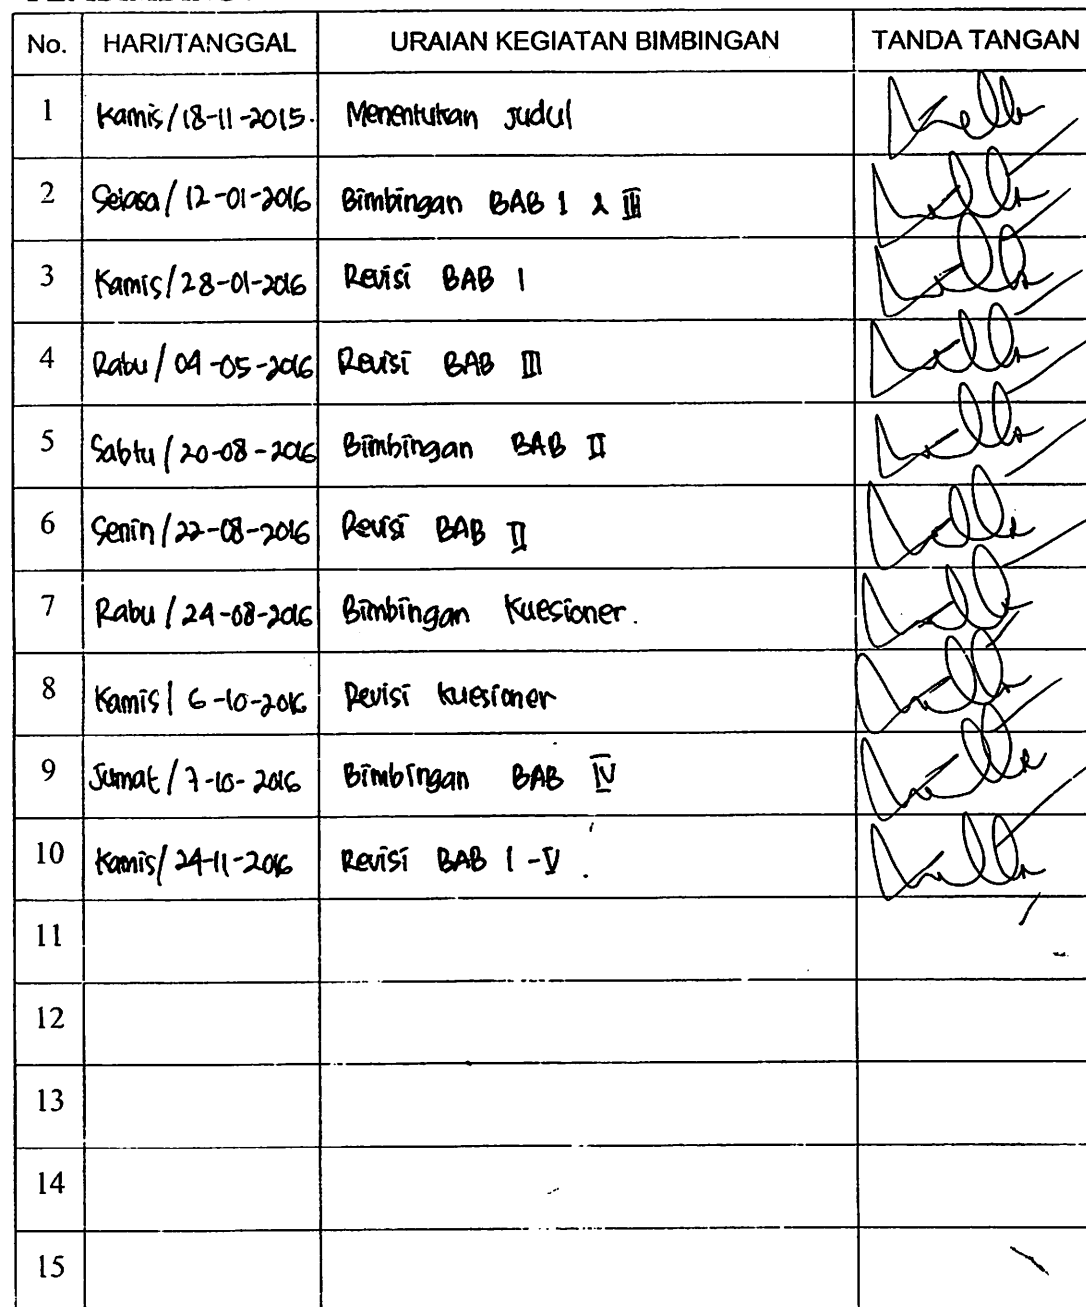 No. HARI/TANGGAL URAIAN KEGIATAN BIMBINGAN TANDA TANGAN
1 Kamis/18-11-2015. Menentukan judul
2 Selasa/12-01-2016 Bimbingan BAB I & III
3 Kamis/28-01-2016 Revisi BAB I
4 Rabu/04-05-2016 Revisi BAB III
5 Sabtu/20-08-2016 Bimbingan BAB II
6 Senin/22-08-2016 Revisi BAB II
7 Rabu/24-08-2016 Bimbingan Kuesioner.
8 Kamis/6-10-2016 Revisi kuesioner
9 Jumat/7-10-2016 Bimbingan BAB IV
10 Kamis/24-11-2016 Revisi BAB I-V.
11
12
13
14
15